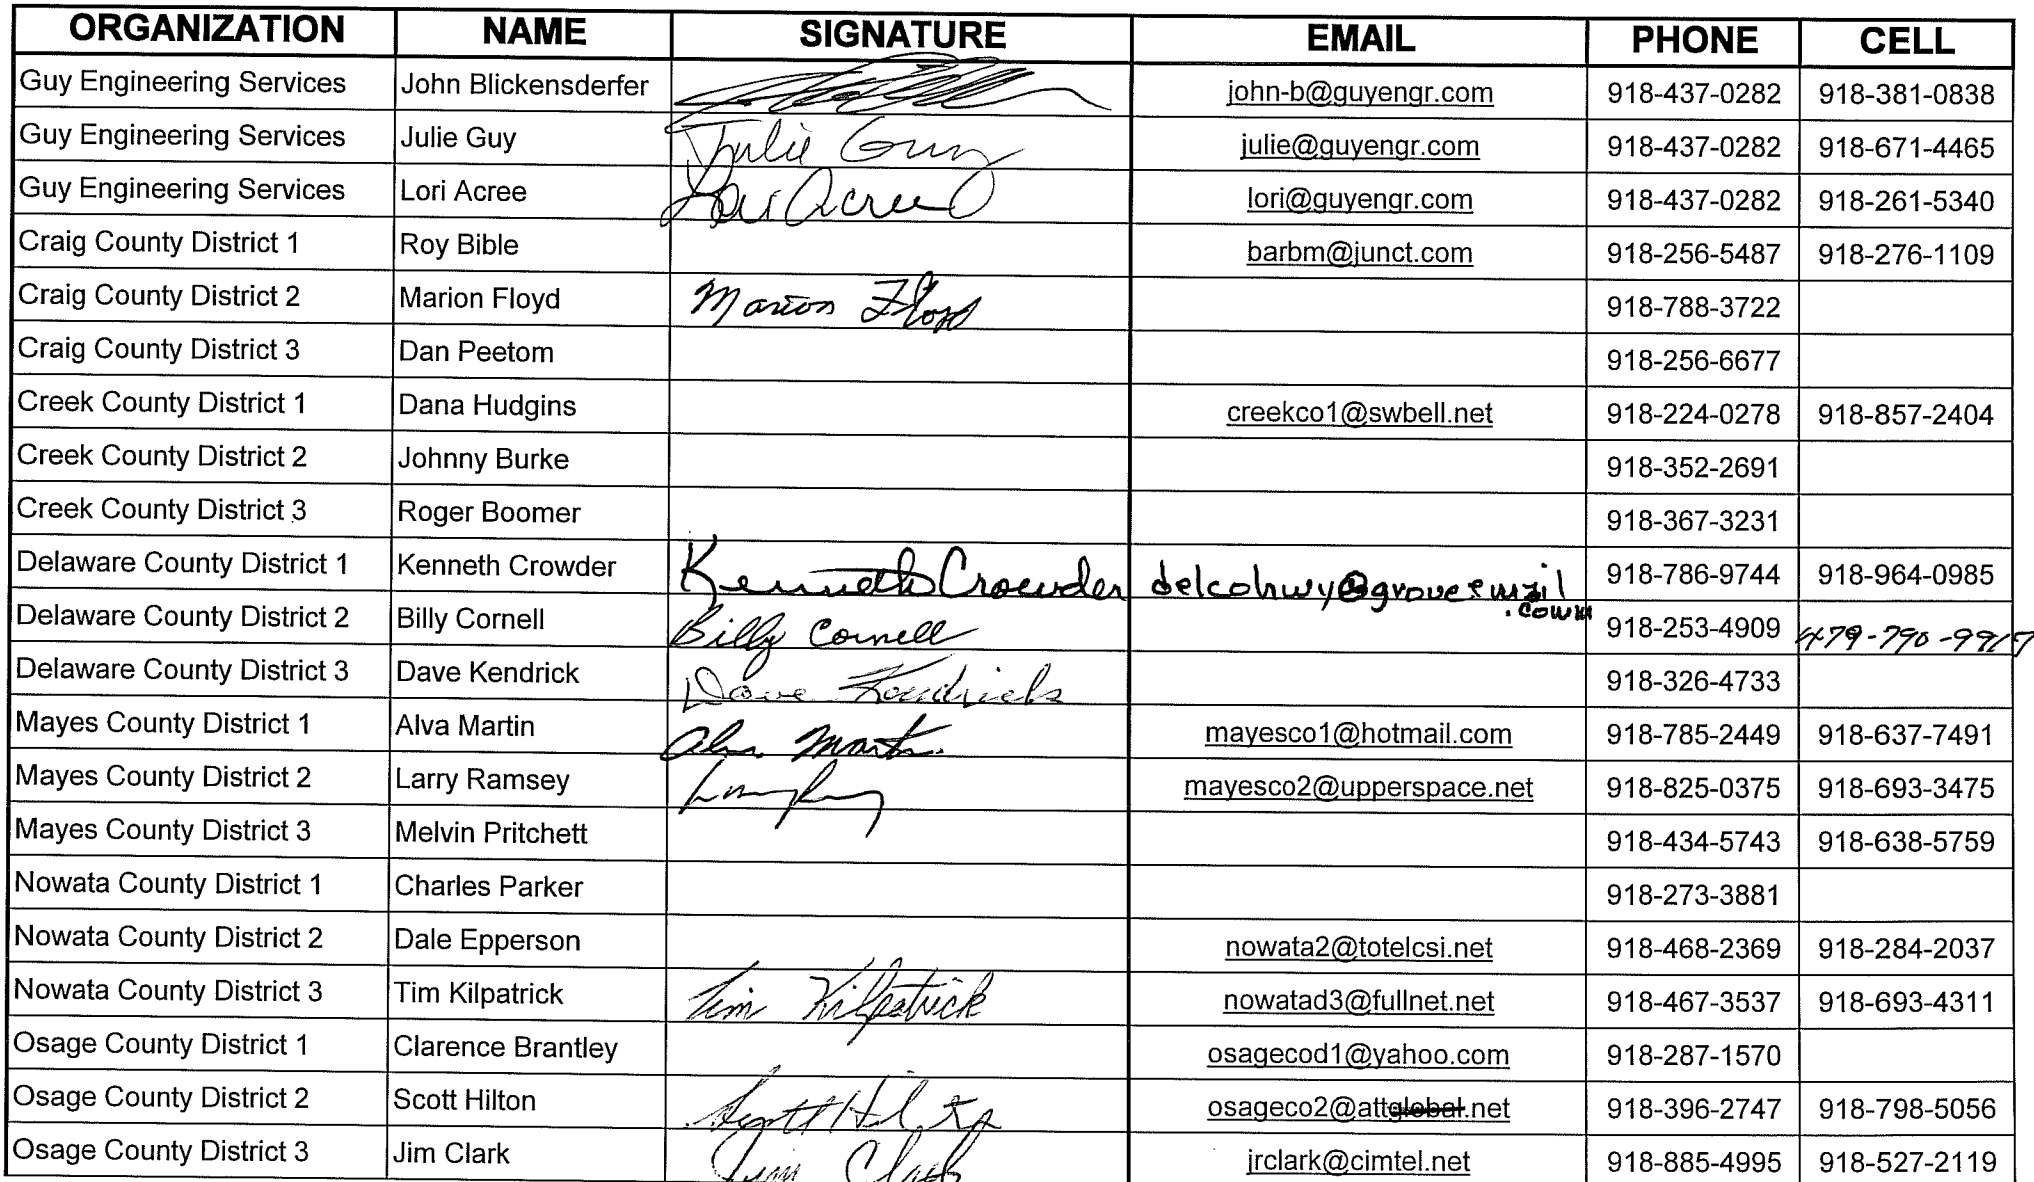 ORGANIZATION NAME SIGNATURE EMAIL PHONE CELL
Guy Engineering Services John Blickensderfer john-b@guyengr.com 918-437-0282 918-381-0838
Guy Engineering Services Julie Guy Julie Guy julie@guyengr.com 918-437-0282 918-671-4465
Guy Engineering Services Lori Acree Lori Acree lori@guyengr.com 918-437-0282 918-261-5340
Craig County District 1 Roy Bible barbm@junct.com 918-256-5487 918-276-1109
Craig County District 2 Marion Floyd Marion Floyd 918-788-3722
Craig County District 3 Dan Peetom 918-256-6677
Creek County District 1 Dana Hudgins creekco1@swbell.net 918-224-0278 918-857-2404
Creek County District 2 Johnny Burke 918-352-2691
Creek County District 3 Roger Boomer 918-367-3231
Delaware County District 1 Kenneth Crowder Kenneth Crowder delcohwy@groveemail.com 918-786-9744 918-964-0985
Delaware County District 2 Billy Cornell Billy Cornell 918-253-4909 479-790-9917
Delaware County District 3 Dave Kendrick Dave Kendrick 918-326-4733
Mayes County District 1 Alva Martin Alva Martin mayesco1@hotmail.com 918-785-2449 918-637-7491
Mayes County District 2 Larry Ramsey mayesco2@upperspace.net 918-825-0375 918-693-3475
Mayes County District 3 Melvin Pritchett 918-434-5743 918-638-5759
Nowata County District 1 Charles Parker 918-273-3881
Nowata County District 2 Dale Epperson nowata2@totelcsi.net 918-468-2369 918-284-2037
Nowata County District 3 Tim Kilpatrick Tim Kilpatrick nowatad3@fullnet.net 918-467-3537 918-693-4311
Osage County District 1 Clarence Brantley osagecod1@yahoo.com 918-287-1570
Osage County District 2 Scott Hilton Scott Hilton osageco2@attglobal.net 918-396-2747 918-798-5056
Osage County District 3 Jim Clark Jim Clark jrclark@cimtel.net 918-885-4995 918-527-2119